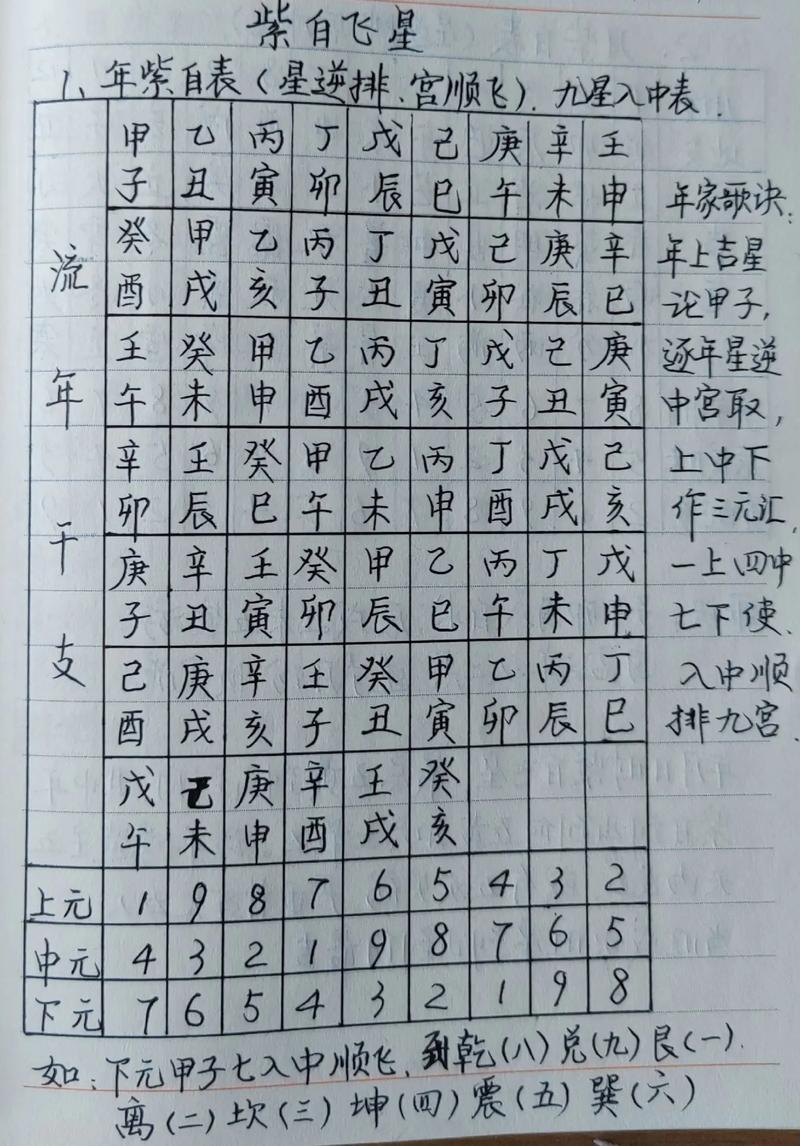 紫白飞星
1、年紫白表（星逆排、宫顺飞）.九星入中表.
流年干支
甲 乙 丙 丁 戊 己 庚 辛 壬
子 丑 寅 卯 辰 巳 午 未 申
癸 甲 乙 丙 丁 戊 己 庚 辛
酉 戌 亥 子 丑 寅 卯 辰 巳
壬 癸 甲 乙 丙 丁 戊 己 庚
午 未 申 酉 戌 亥 子 丑 寅
辛 壬 癸 甲 乙 丙 丁 戊 己
卯 辰 巳 午 未 申 酉 戌 亥
庚 辛 壬 癸 甲 乙 丙 丁 戊
子 丑 寅 卯 辰 巳 午 未 申
己 庚 辛 壬 癸 甲 乙 丙 丁
酉 戌 亥 子 丑 寅 卯 辰 巳
戊 己 庚 辛 壬 癸
午 未 申 酉 戌 亥
上元 1 9 8 7 6 5 4 3 2
中元 4 3 2 1 9 8 7 6 5
下元 7 6 5 4 3 2 1 9 8
年家歌诀:
年上吉星
论甲子,
逐年星逆
中宫取,
上中下
作三元汇,
一上四中
七下使.
入中顺
排九宫.
如:下元甲子七入中顺飞,到乾(八)兑(九)艮(一).
离(二)坎(三)坤(四)震(五)巽(六)